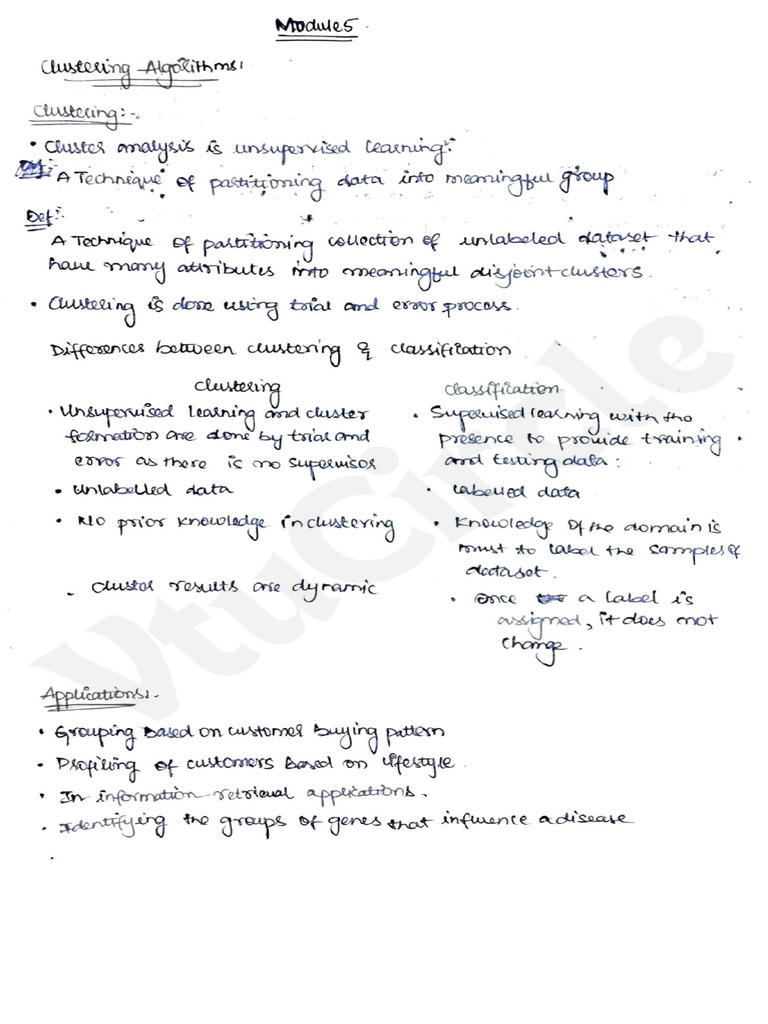 Module 5.
Clustering Algorithms:
Clustering:-.
• Cluster analysis is unsupervised learning.
A Technique of partitioning data into meaningful group
Def:
A Technique of partitioning collection of unlabeled dataset that
have many attributes into meaningful disjoint clusters.
• Clustering is done using trial and error process.
Differences between clustering & classification
Clustering
• Unsupervised learning and cluster
formation are done by trial and
error as there is no supervisor
• Unlabelled data
• No prior knowledge in clustering
. Cluster results are dynamic
Classification
• Supervised learning with the
presence to provide training
and testing data:
• Labelled data
• Knowledge of the domain is
must to label the samples of
dataset.
• Once a label is
assigned, it does not
change.
Applications:-
• Grouping Based on customer buying pattern
• Profiling of customers Based on lifestyle.
• In information retrieval applications.
• Identifying the groups of genes that influence a disease
VtuCircle